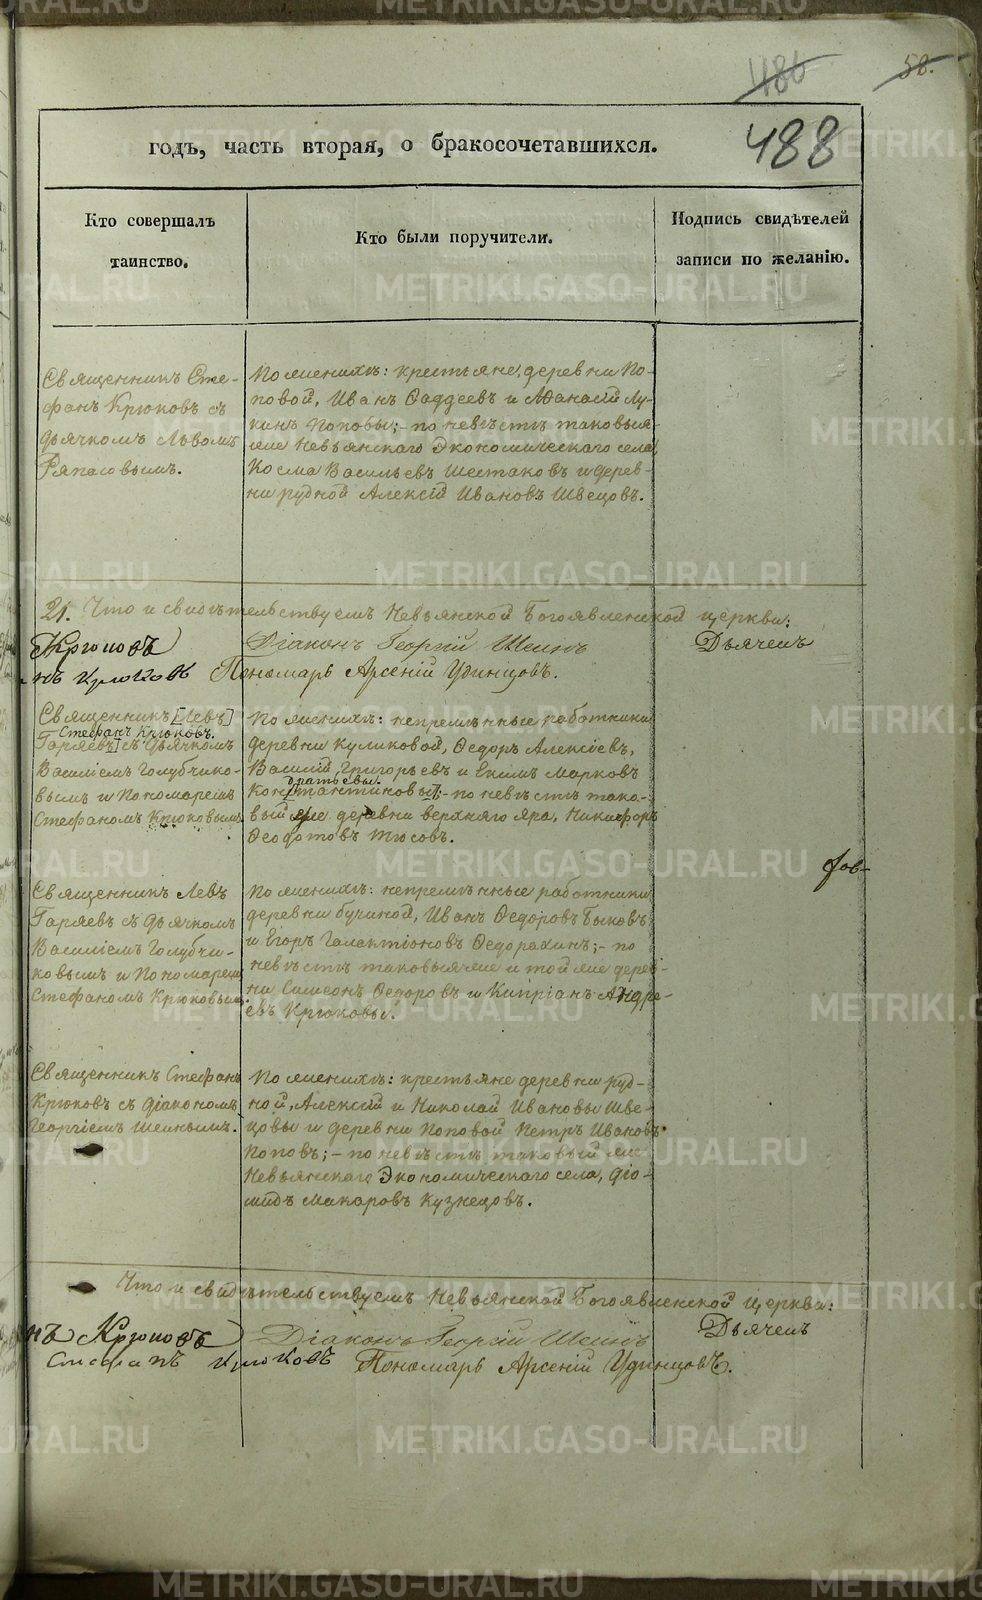 486
58.
488
годъ, часть вторая, о бракосочетавшихся.
Кто совершалъ
таинство.
Кто были поручители.
Подпись свидѣтелей
записи по желанію.
Священникъ Сте-
фанъ Крюковъ съ
дьячкомъ Львомъ
Ряпасовымъ.
По женихѣ: крестьяне, деревни По-
повой, Иванъ Ѳаддеевъ и Аѳанасій Лу-
кинъ Поповы; - по невѣстѣ таковыя-
же Невьянскаго Экономическаго села,
Косма Васильевъ Шестаковъ и дерев-
ни рудной Алексій Ивановъ Швецовъ.
21. Что и свидѣтельствуемъ Невьянской Богоявленской церкви:
Крюковъ Діаконъ Георгій Шеинъ Дьячекъ
нъ Крюковъ Пономарь Арсеній Удинцовъ.
Священникъ [Левъ]
Стефанъ Крюковъ.
Гаряевъ] съ дьячкомъ
Василіемъ Голубчико-
вымъ и Пономаремъ
Стефаномъ Крюковымъ.
По женихѣ: непремѣнные работники
деревни Куликовой, Ѳедоръ Алексіевъ,
Василій Григорьевъ и Екимъ Марковъ
братьевы.
Константиновы; - по невѣстѣ тако-
вый же деревни верхняго яра, Никифоръ
Ѳеодотовъ Тюсовъ.
Священникъ Левъ
Гаряевъ съ дьячкомъ
Василіемъ Голубчи-
ковымъ и Пономаремъ
Стефаномъ Крюковымъ.
По женихѣ: непремѣнные работники
деревни бучиной, Иванъ Ѳедоровъ Быковъ
и Егоръ Галактіоновъ Ѳедорахинъ; - по
невѣстѣ таковыяже и той же дерев-
ни Симеонъ Ѳедоровъ и Кипріанъ Андре-
евъ Крюковы.
Священникъ Стефанъ
Крюковъ съ діакономъ
Георгіемъ Шеинымъ.
По женихѣ: крестьяне деревни руд-
ной, Алексій и Николай Ивановы Шве-
цовы и деревни Поповой Петръ Ивановъ
Поповъ; - по невѣстѣ таковый же
Невьянскаго Экономическаго села, Діо-
мидъ Макаровъ Кузнецовъ.
Что и свидѣтельствуемъ Невьянской Богоявленской церкви:
нъ Крюковъ Діаконъ Георгій Шеинъ Дьячекъ
Стефанъ Крюковъ Пономарь Арсеній Удинцовъ.
METRIKI.GASO-URAL.RU